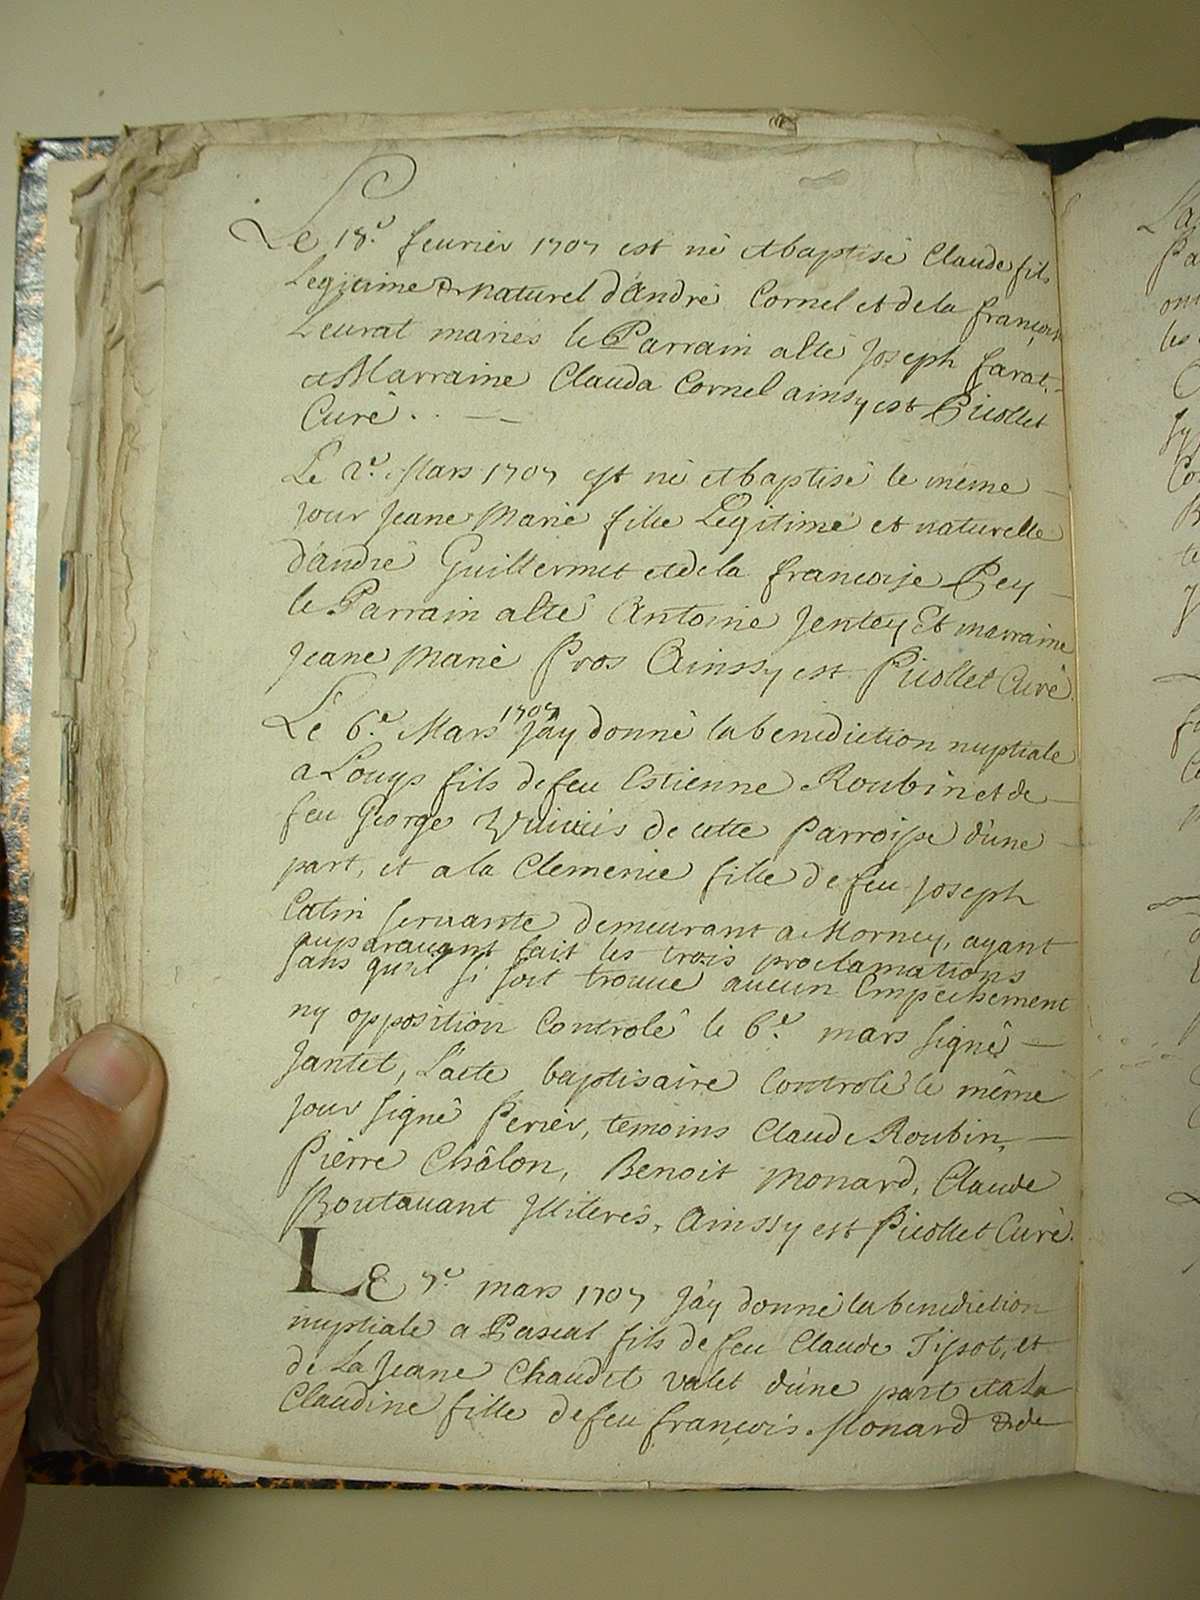 Le 18.e feurier 1707 est né et baptisé Claude fils
Legitime et naturel d'André Cornel et de la françoise
Leurat mariés le Parrain a été Joseph farat.
et Marraine Clauda Cornel ainsy est Picollet
Curé.
Le 2.e Mars 1707 est né et baptisé le même
jour Jeane Marie fille Legitime et naturelle
d'andré Guillermet et de la francoise Pey
le Parrain a été Antoine Jentey Et marraine
Jeane Marie Pros Ainssy est Picollet Curé.
Le 6.e Mars 1707 J'ay donné la benediction nuptiale
a Louys fils de feu Estienne Roubin et de
feu George de cette Parroisse d'une
part, et a la Clemence fille de feu Joseph
Catin seruante demeurant a Morney, ayant
auparauant fait les trois proclamations
sans qu'il si soit trouué aucun Empechement
ny opposition Controlé le 6.e mars signé
Jantet, L'acte baptisaire Controlé le même
jour signé Perier, temoins Claude Roubin,
Pierre Châlon, Benoit Monard, Claude
Boutauant Jlliterés, Ainssy est Picollet Curé.
LE 7.e mars 1707 J'ay donné la benediction
nuptiale a Pascal fils de feu Claude Tissot, et
de La Jeane Chaudet valet d'une part et a la
Claudine fille de feu françois Monard et de